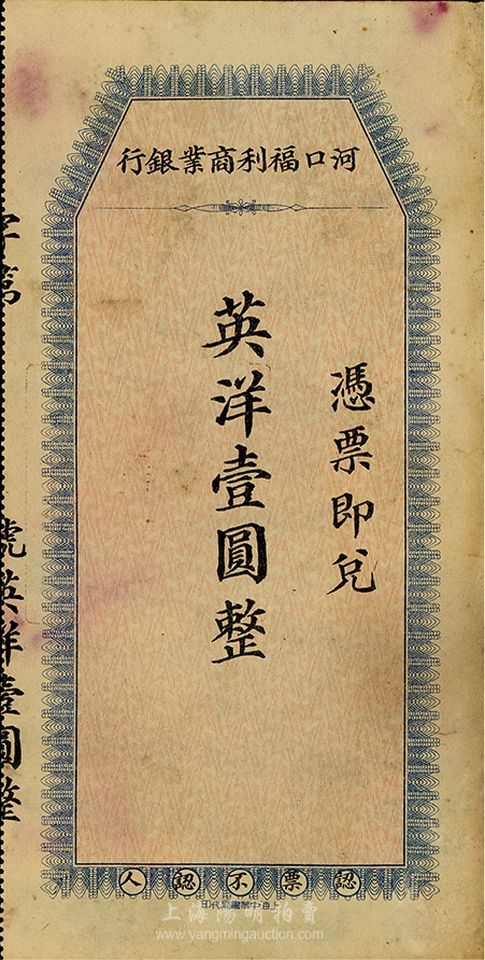 河口福利商業銀行
憑票即兌
英洋壹圓整
字第
號英洋壹圓整
認票不認人
上海陽明拍賣
www.yangmingauction.com